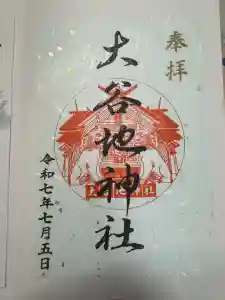 奉拝
大谷地神社
令和七年七月五日